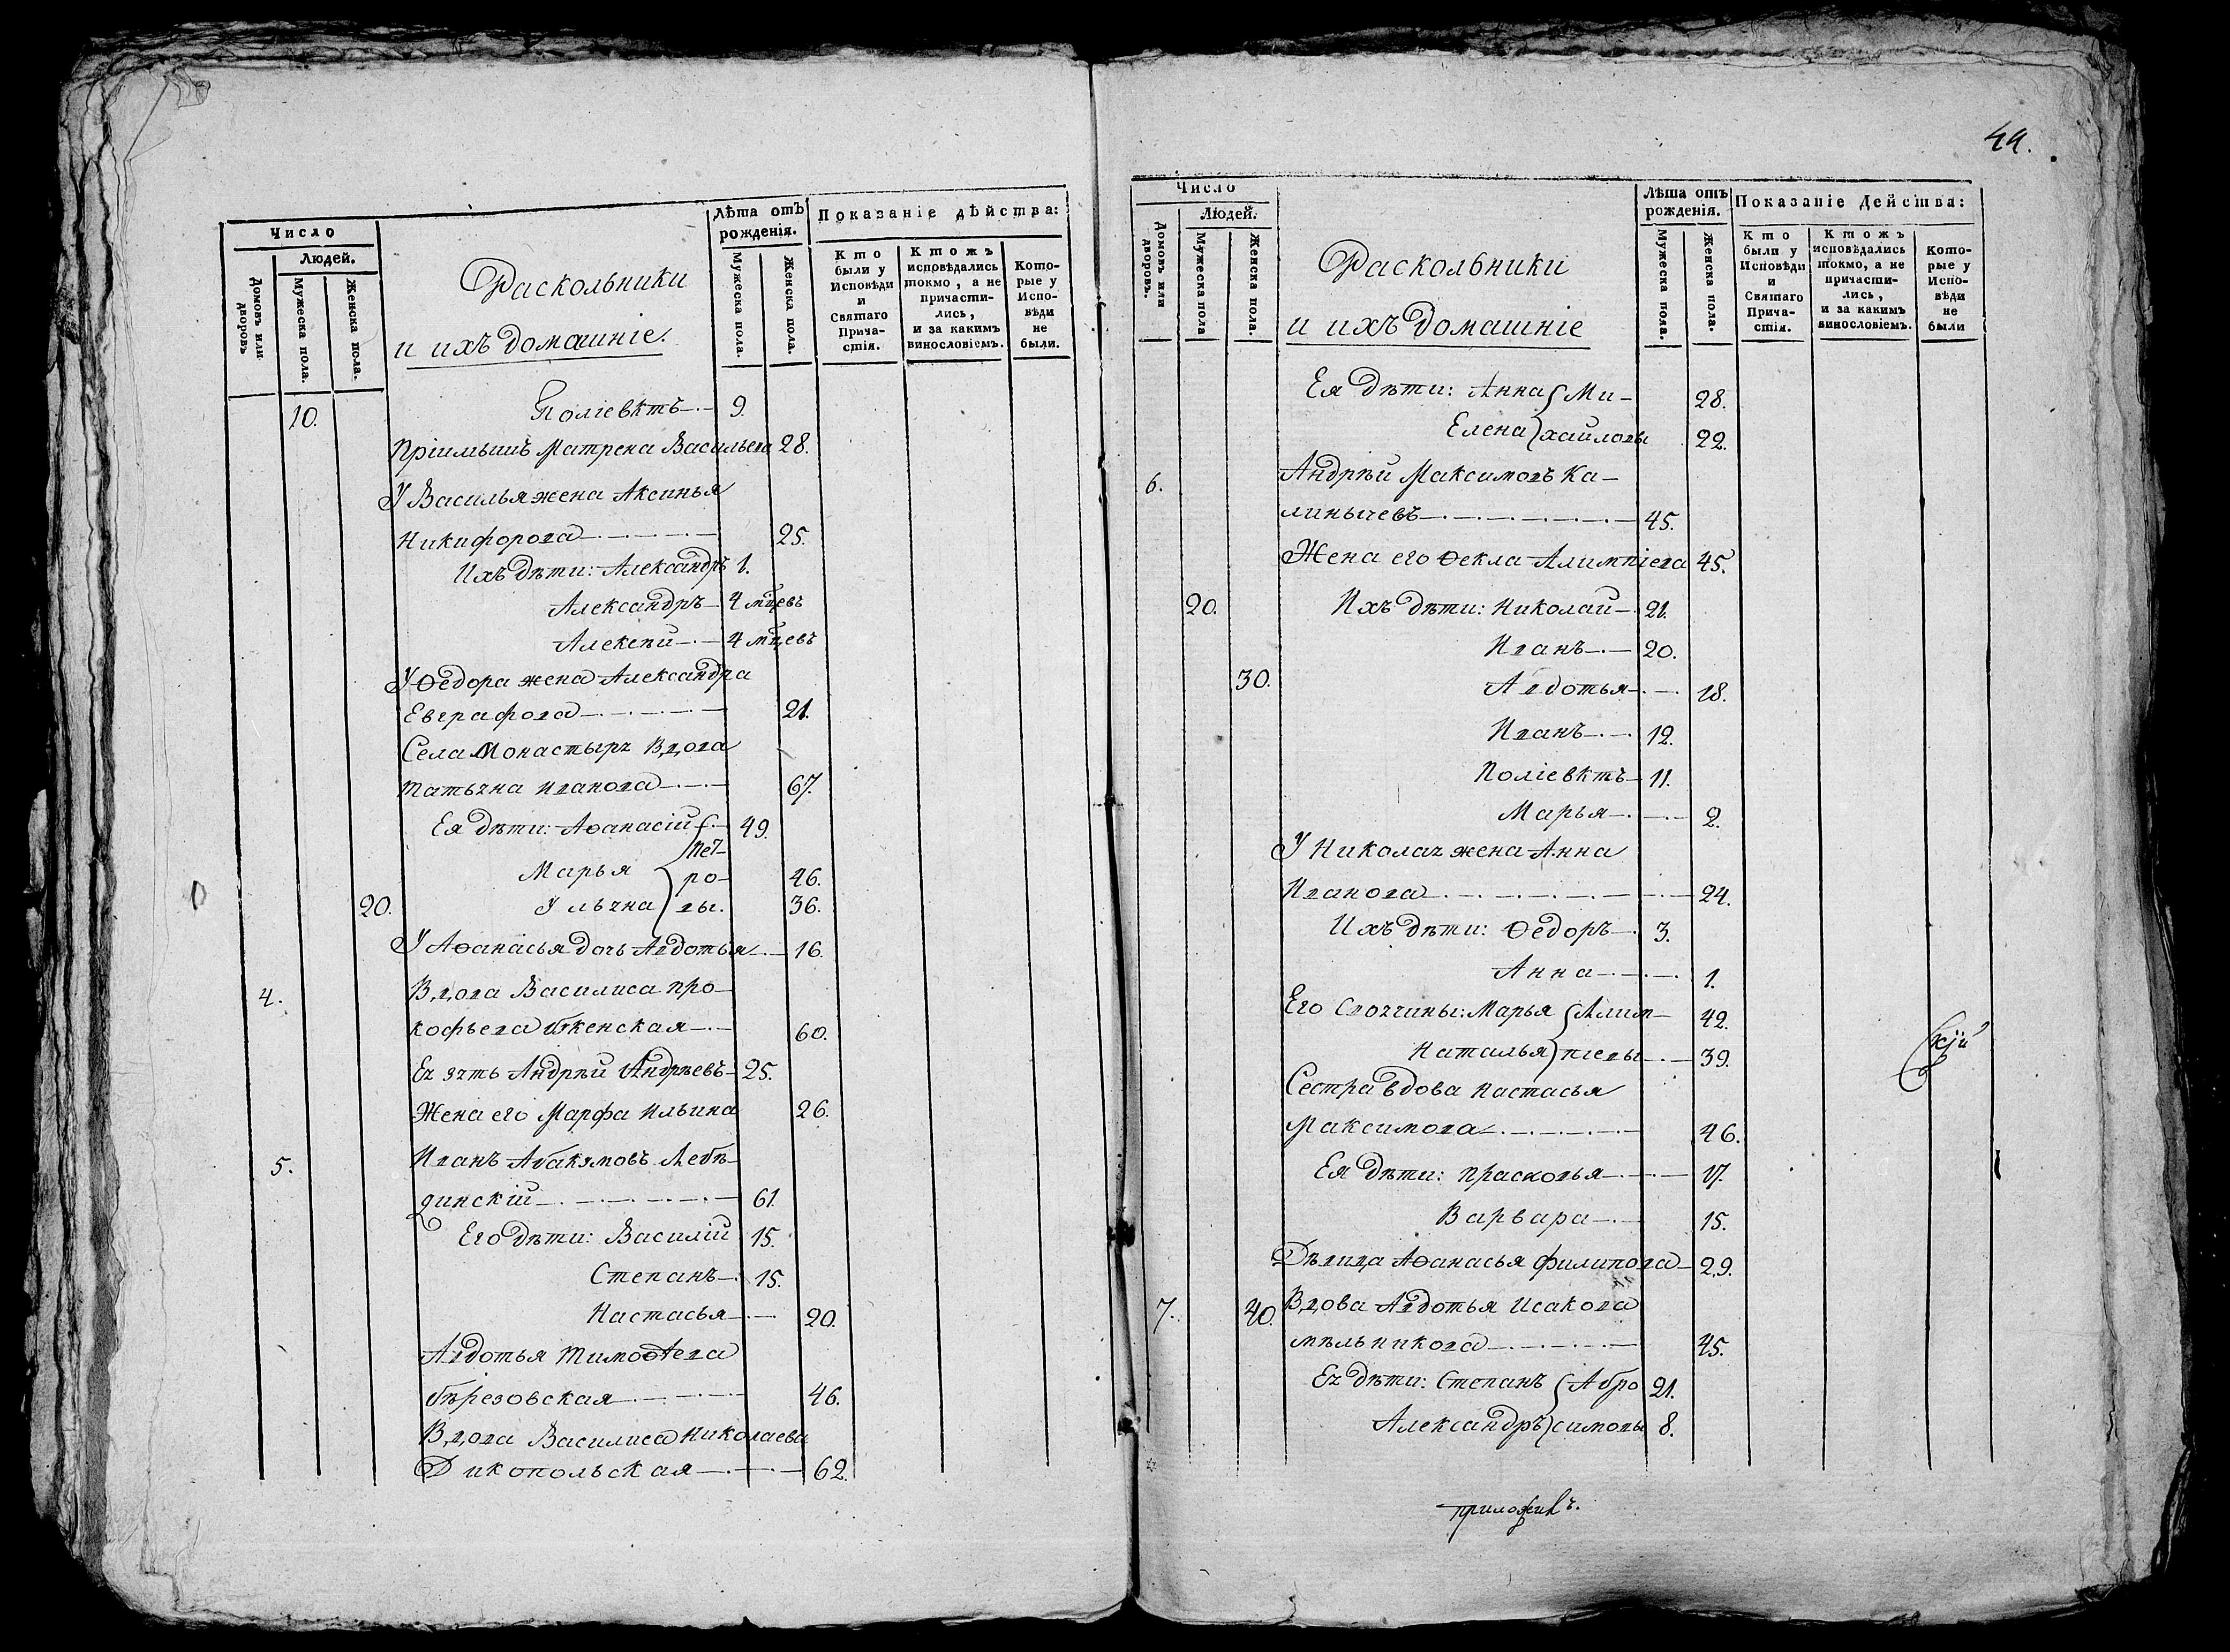 Число
Людей.
Домовъ или дворовъ
Мужеска пола.
Женска пола.
Раскольники
и ихъ домашніе.
Лѣта отъ рожденія.
Мужеска пола.
Женска пола.
Показаніе дѣйства:
Кто были у Исповѣди и Святаго Причастія.
Ктожъ исповѣдались токмо, а не причастились, и за какимъ винословіемъ.
Которые у Исповѣди не были.
10. Поліевктъ 9.
Матрена Васильева 28.
У Василья жена Аксинья
Никифорова 25.
Ихъ дѣти: Александръ 1.
Александръ 4 мцевъ
Алексѣй 4 мцевъ
У Ѳедора жена Александра
Евграфова 21.
Села Монастыря Вдова
Татьяна Иванова 67.
Ея дѣти: Аѳанасій 49.
Пет-
Марья ро- 46.
20. Ульяна вы. 36.
У Аѳанасья дочь Авдотья 16.
4. Вдова Василиса Про-
кофьева 60.
Ея зять Андрѣй Андрѣевъ 25.
Жена его Марфа Ильина 26.
5. Иванъ Абакумовъ Лебѣ-
динскій 61.
Его дѣти: Василій 15.
Степанъ 15.
Настасья 20.
Авдотья Тимоѳѣева
Бѣрезовская 46.
Вдова Василиса Николаева
Дикопольская 62.
44.
Число
Людей.
Домовъ или дворовъ.
Мужеска пола
Женска пола.
Раскольники
и ихъ домашніе
Лѣта отъ рожденія.
Мужеска пола.
Женска пола.
Показаніе Действа:
Кто были у Исповѣди и Святаго Причастія.
Ктожъ исповѣдались токмо, а не причастились, и за какимъ винословіемъ.
Которые у Исповѣди не были
Ея дѣти: Анна Ми- 28.
Елена хайловы 22.
6. Андрѣй Максимовъ Ка-
линычевъ 45.
Жена его Ѳекла Алимпіева 45.
20. Ихъ дѣти: Николай 21.
Иванъ 20.
30. Авдотья 18.
Иванъ 12.
Поліевктъ 11.
Марья 2.
У Николая жена Анна
Иванова 24.
Ихъ дѣти: Ѳедоръ 3.
Анна 1.
Его Своячины: Марья Алим- 42.
Наталья піевы 39.
кій
Сестра вдова Настасья
Максимова 46.
Ея дѣти: Прасковья 17.
Варвара 15.
Дѣвица Аѳанасья Филипова 29.
7. 40. Вдова Авдотья Исакова
Мѣльникова 45.
Ея дѣти: Степанъ Абро 21.
Александръ симовы 8.
приложилъ.